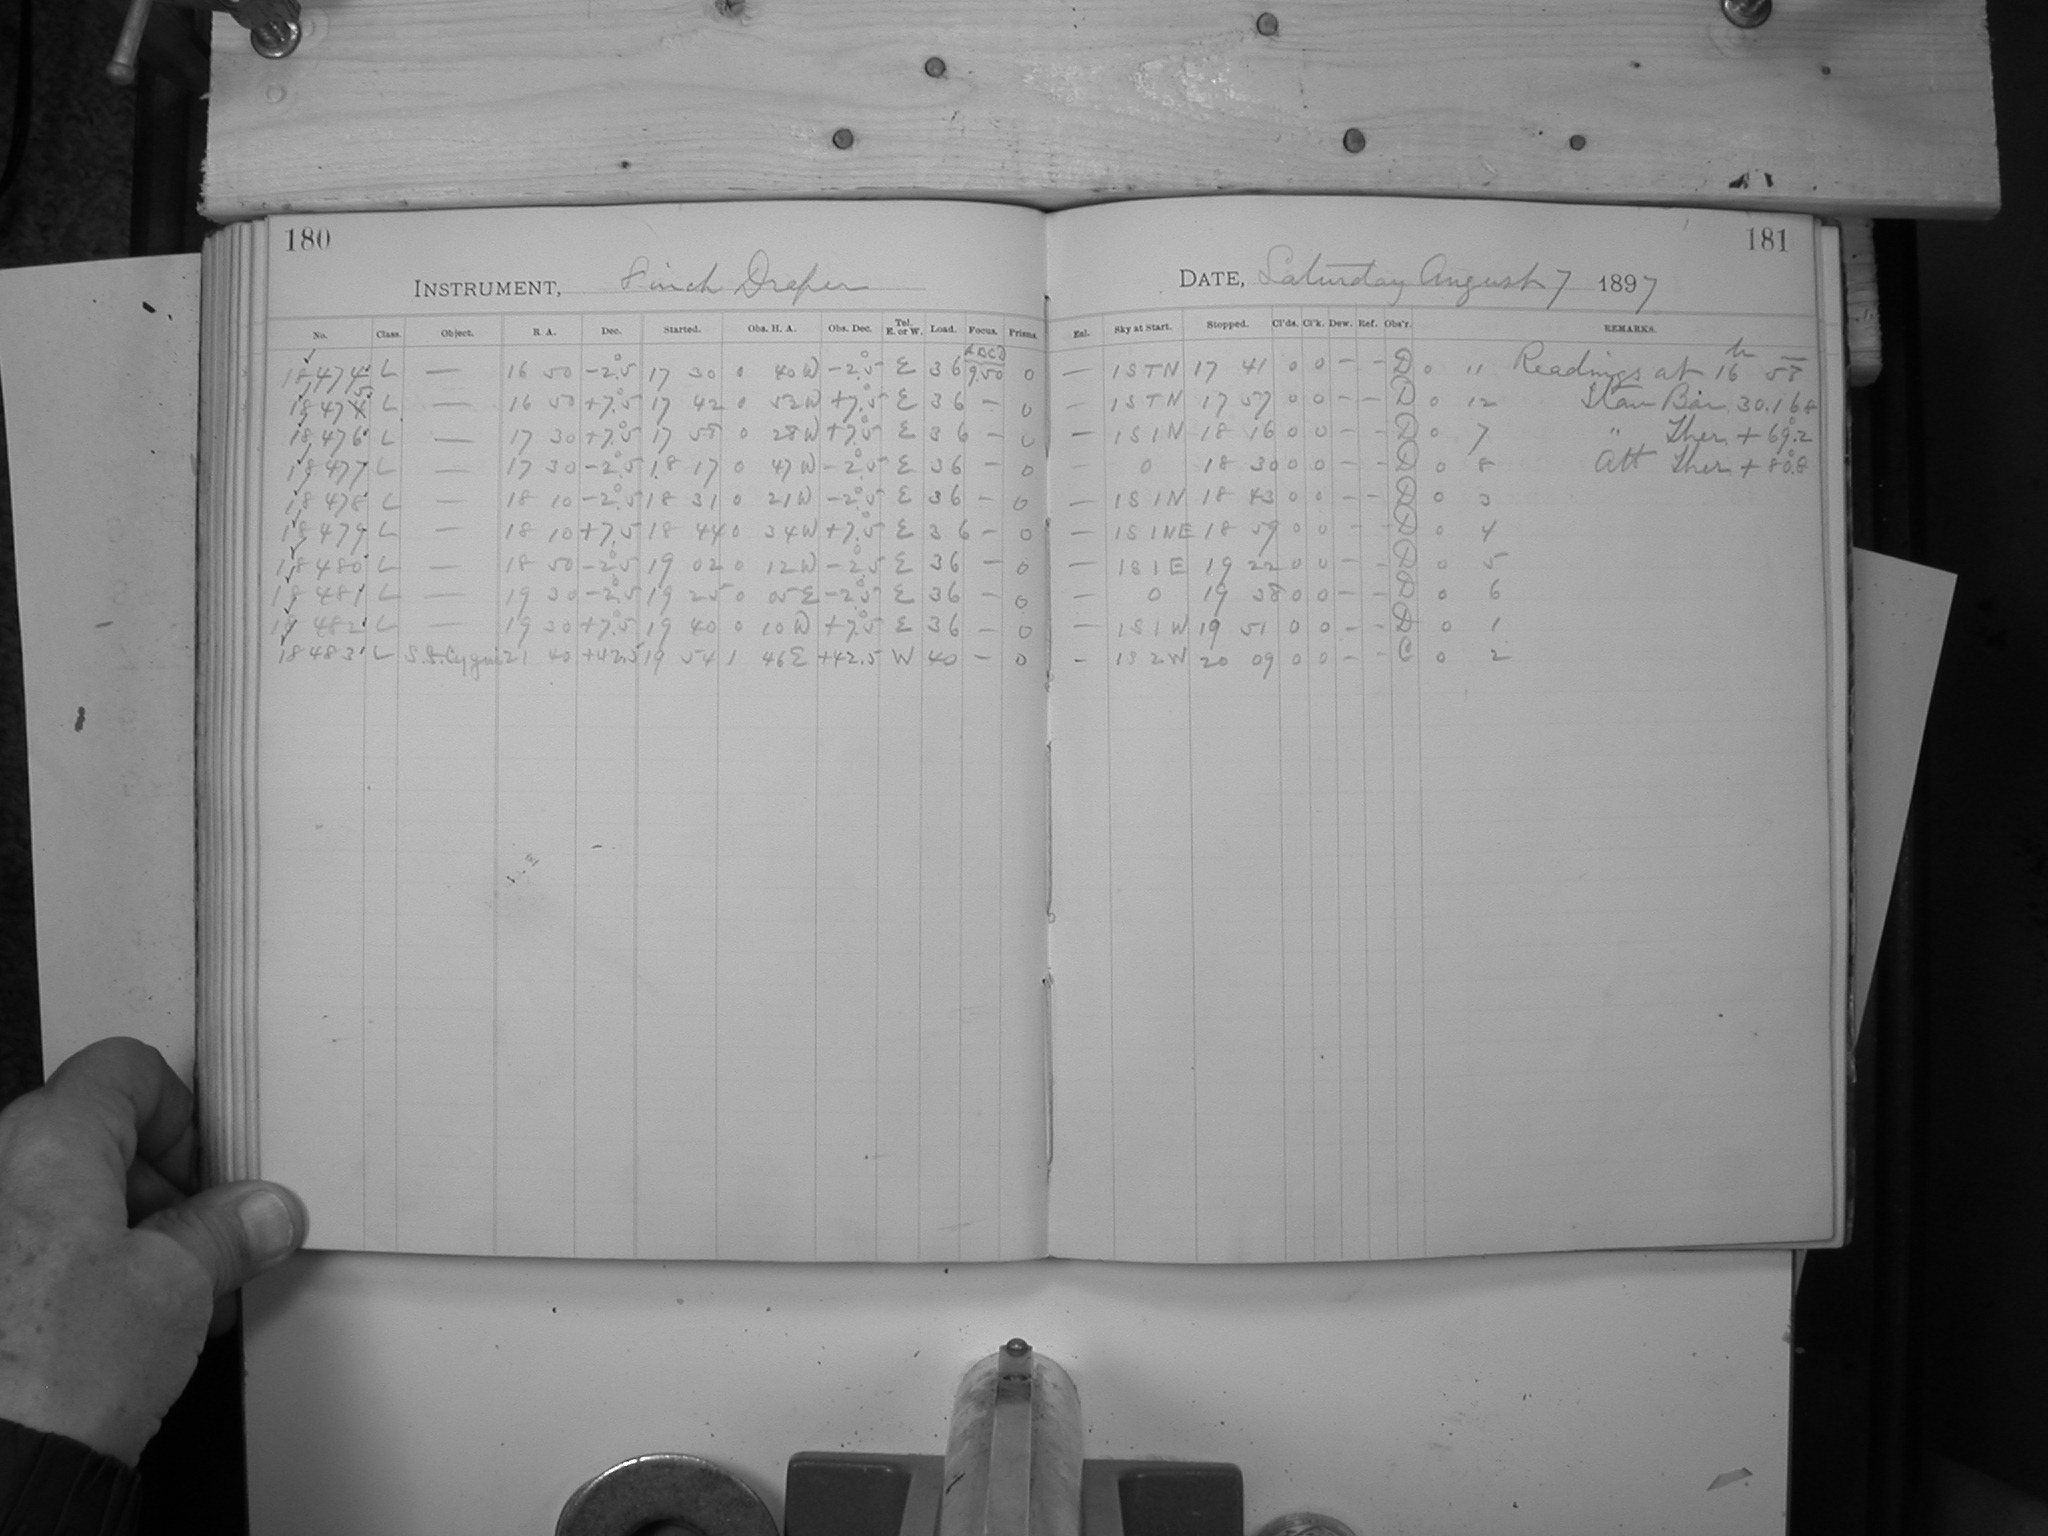 180
INSTRUMENT, 8 inch Draper
No. Class. Object. R. A. Dec. Started. Obs. H. A. Obs. Dec. Tel. E. or W. Load. Focus. Prisms
ABCD
18474 L — 16 50 -2°.5 17 30 0 40W -2°.5 E 36 9.50 0
18475 L — 16 50 +7°.5 17 42 0 52W +7°.5 E 36 - 0
18476 L — 17 30 +7°.5 17 58 0 28W +7°.5 E 36 - 0
18477 L — 17 30 -2°.5 18 17 0 47W -2°.5 E 36 - 0
18478 L — 18 10 -2°.5 18 31 0 21W -2°.5 E 36 - 0
18479 L — 18 10 +7°.5 18 44 0 34W +7°.5 E 36 - 0
18480 L — 18 50 -2°.5 19 02 0 12W -2°.5 E 36 - 0
18481 L — 19 30 -2°.5 19 25 0 05E -2°.5 E 36 - 0
18482 L — 19 30 +7°.5 19 40 0 10W +7°.5 E 36 - 0
18483 L S.S. Cygni 21 40 +42.5 19 54 1 46E +42.5 W 40 - 0
181
DATE, Saturday August 7 1897
Enl. Sky at Start. Stopped. Cl'ds. Cl'k. Dew. Ref. Obs'r. REMARKS.
— 1STN 17 41 0 0 - - D 0 11 Readings at 16h 58
— 1STN 17 57 0 0 - - D 0 12 Stan Bar. 30.168
— 1S1N 18 16 0 0 - - D 0 7 " Ther. +69°.2
— 0 18 30 0 0 - - D 0 8 Att Ther +80°.8
— 1S1N 18 43 0 0 - - D 0 3
— 1S1NE 18 59 0 0 - - D 0 4
— 1S1E 19 22 0 0 - - D 0 5
— 0 19 38 0 0 - - D 0 6
— 1S1W 19 51 0 0 - - D 0 1
- 1S2W 20 09 0 0 - - C 0 2